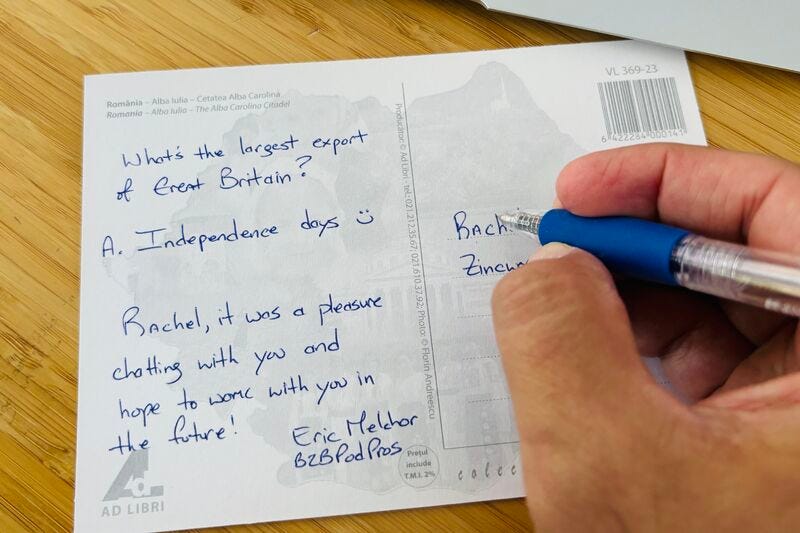 România – Alba Iulia – Cetatea Alba Carolina
Romania – Alba Iulia – The Alba Carolina Citadel
What's the largest export
of Great Britain?
A. Independence days
Rachel, it was a pleasure
chatting with you and
hope to work with you in
the future!
Eric Melchor
B2BPodPros
AD LIBRI
Producător: © Ad Libri; tel.: 021.212.35.67; 021.610.37.92; Photo: © Florin Andreescu
Prețul
include
T.M.I. 2%
colec
VL 369-23
6 422284 000141
Rach